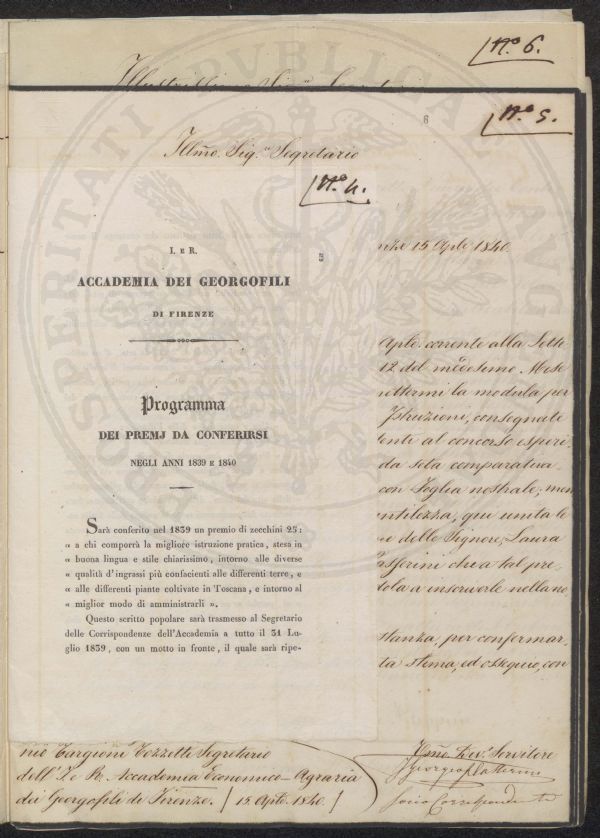 N.º 6.
N.º 5.
Illmo. Sig.re Segretario
N.º 4.
I. E R.
ACCADEMIA DEI GEORGOFILI
DI FIRENZE
Programma
DEI PREMJ DA CONFERIRSI
NEGLI ANNI 1839 E 1840
Sarà conferito nel 1839 un premio di zecchini 25:
« a chi comporrà la migliore istruzione pratica, stesa in
« buona lingua e stile chiarissimo, intorno alle diverse
« qualità d'ingrassi più confacienti alle differenti terre, e
« alle differenti piante coltivate in Toscana, e intorno al
« miglior modo di amministrarli ».
Questo scritto popolare sarà trasmesso al Segretario
delle Corrispondenze dell'Accademia a tutto il 31 Lu-
glio 1839, con un motto in fronte, il quale sarà ripe-
nze 15 Aple 1840.
Aple corrente alla Sette
12 del medesimo Mese
mettermi la modula per
Istruzioni, consegnate
tente al concorso esperi
da seta comparativa
con Foglia nostrale; men
entilezza, qui unita le
delle Signore, Laura
che a tal pre
tola a inscriverle nella no
stanza, per confermar
ta stima, ed ossequio, con
nio Targioni Tozzetti Segretario
dell' I. e R. Accademia Economico-Agraria
dei Georgofili di Firenze. / 15 Aple 1840. /
Dev. Servitore
Socio Corrispondente
PROSPERITATI PUBLICAE AUG